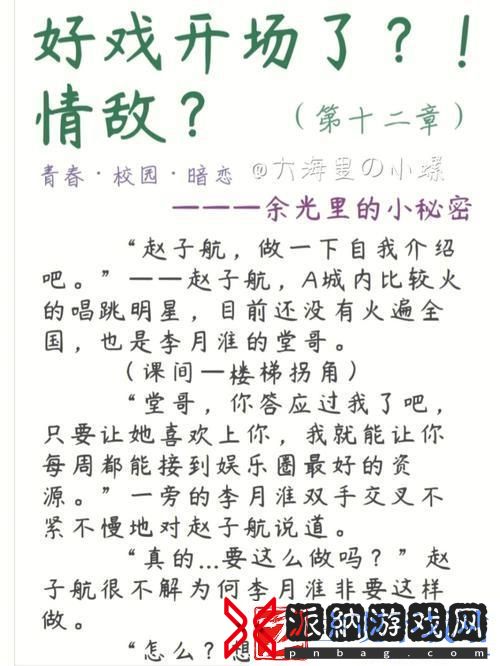 好戏开场了？！
情敌？ （第十二章）
青春·校园·暗恋 @大海里の小螺
———余光里的小秘密
“赵子航，做一下自我介绍
吧。”——赵子航，A城内比较火
的唱跳明星，目前还没有火遍全
国，也是李月淮的堂哥。
（课间—楼梯拐角）
“堂哥，你答应过我了吧，
只要让她喜欢上你，我就能让你
每周都能接到娱乐圈最好的资
源。”一旁的李月淮双手交叉不
紧不慢地对赵子航说道。
“真的...要这么做吗？”赵
子航很不解为何李月淮非要这样
做。
“怎么？想
派納游戏网
pnbag.com